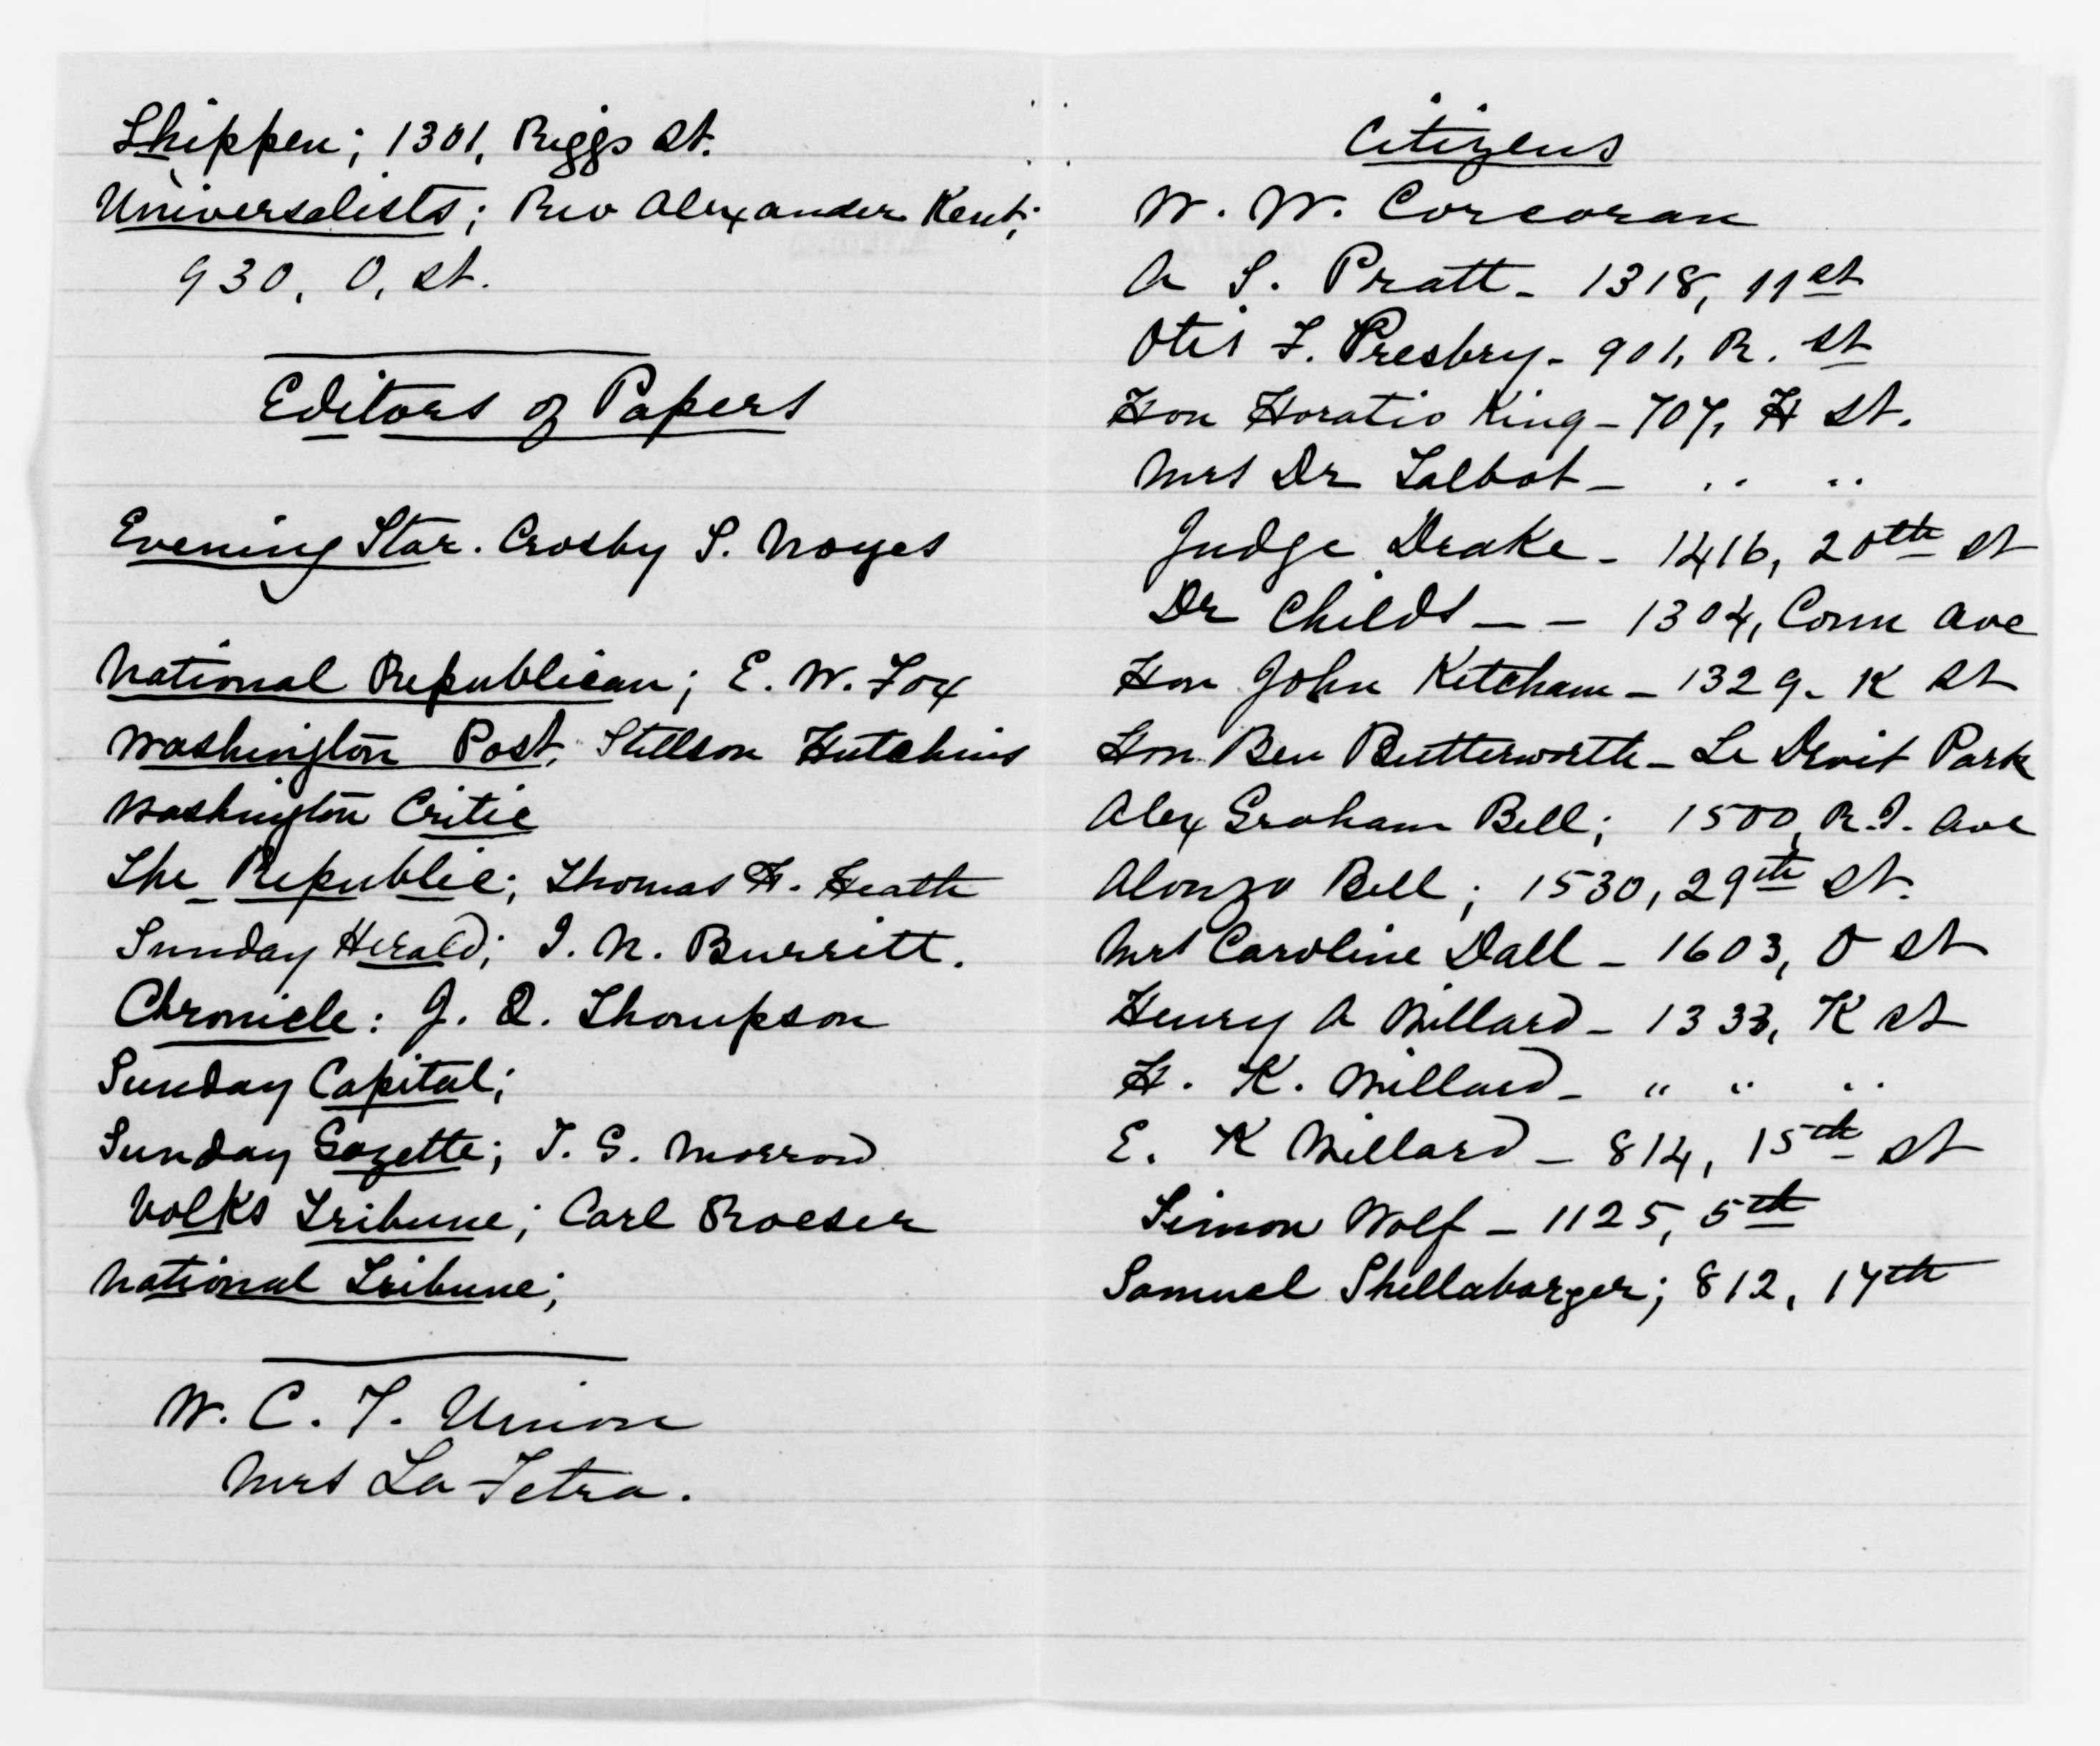 Shippen; 1301, Riggs St.
Universalists; Rev Alexander Kent;
930, O, St.
Editors of Papers
Evening Star. Crosby S. Noyes
National Republican; E. W. Fox
Washington Post, Stillson Hutchins
Washington Critic
The Republic; Thomas H. Heath
Sunday Herald; I. N. Burritt.
Chronicle: J. Q. Thompson
Sunday Capital;
Sunday Gazette; T. G. Morrow
Volks Tribune; Carl Roeser
National Tribune;
W. C. T. Union
Mrs La Fetra.
Citizens
W. W. Corcoran
A S. Pratt - 1318, 11 St
Otis F. Presbry - 901, R. St
Hon Horatio King - 707, H St.
Mrs Dr Talbot - " "
Judge Drake - 1416, 20th St
Dr Childs - - 1304, Conn Ave
Hon John Ketcham - 1329 - K St
Hon Ben Butterworth - Le Droit Park
Alex Graham Bell; 1500, R.I. Ave
Alonzo Bell; 1530, 29th St.
Mrs Caroline Dall - 1603, O St
Henry A Willard - 1333, K St
H. K. Willard - " " "
E. K Willard - 814, 15th St
Simon Wolf - 1125, 5th
Samuel Shellabarger; 812, 17th